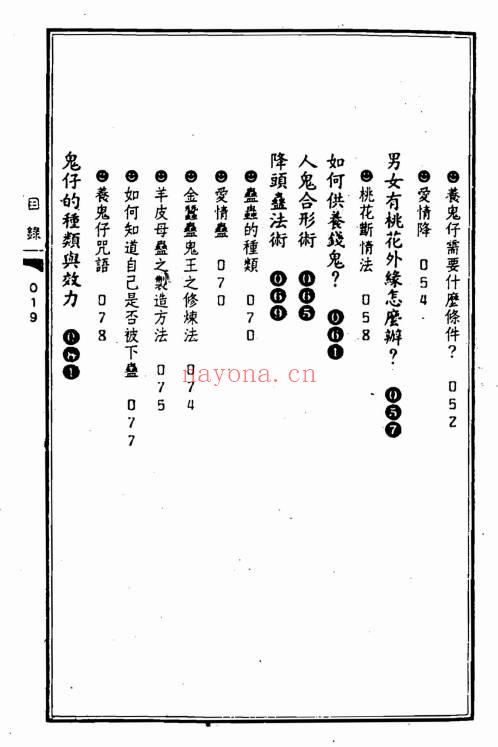 ☻養鬼仔需要什麼條件? 052
☻愛情降 054
男女有桃花外緣怎麼辦? 057
☻桃花斷情法 058
如何供養錢鬼? 061
人鬼合形術 065
降頭蠱法術 069
☻蠱蟲的種類 070
☻愛情蠱 070
☻金蠶蠱鬼王之修煉法 074
☻羊皮母蠱之製造方法 075
☻如何知道自己是否被下蠱 077
☻養鬼仔咒語 078
鬼仔的種類與效力 081
目錄
019
nayona.cn